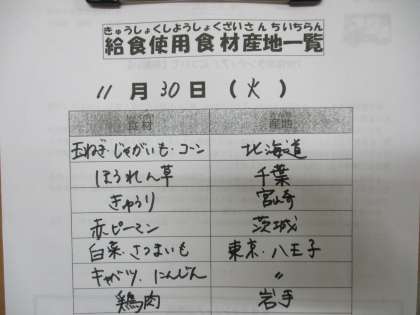 きゅうしょくしようしょくざいさんちいちらん
給食使用食材産地一覧
11月30日(火)
食材 産地
玉ねぎ・じゃがいも・コーン 北海道
ほうれん草 千葉
きゅうり 宮崎
赤ピーマン 茨城
白菜・さつまいも 東京・八王子
キャベツ・にんじん 〃
鶏肉 岩手